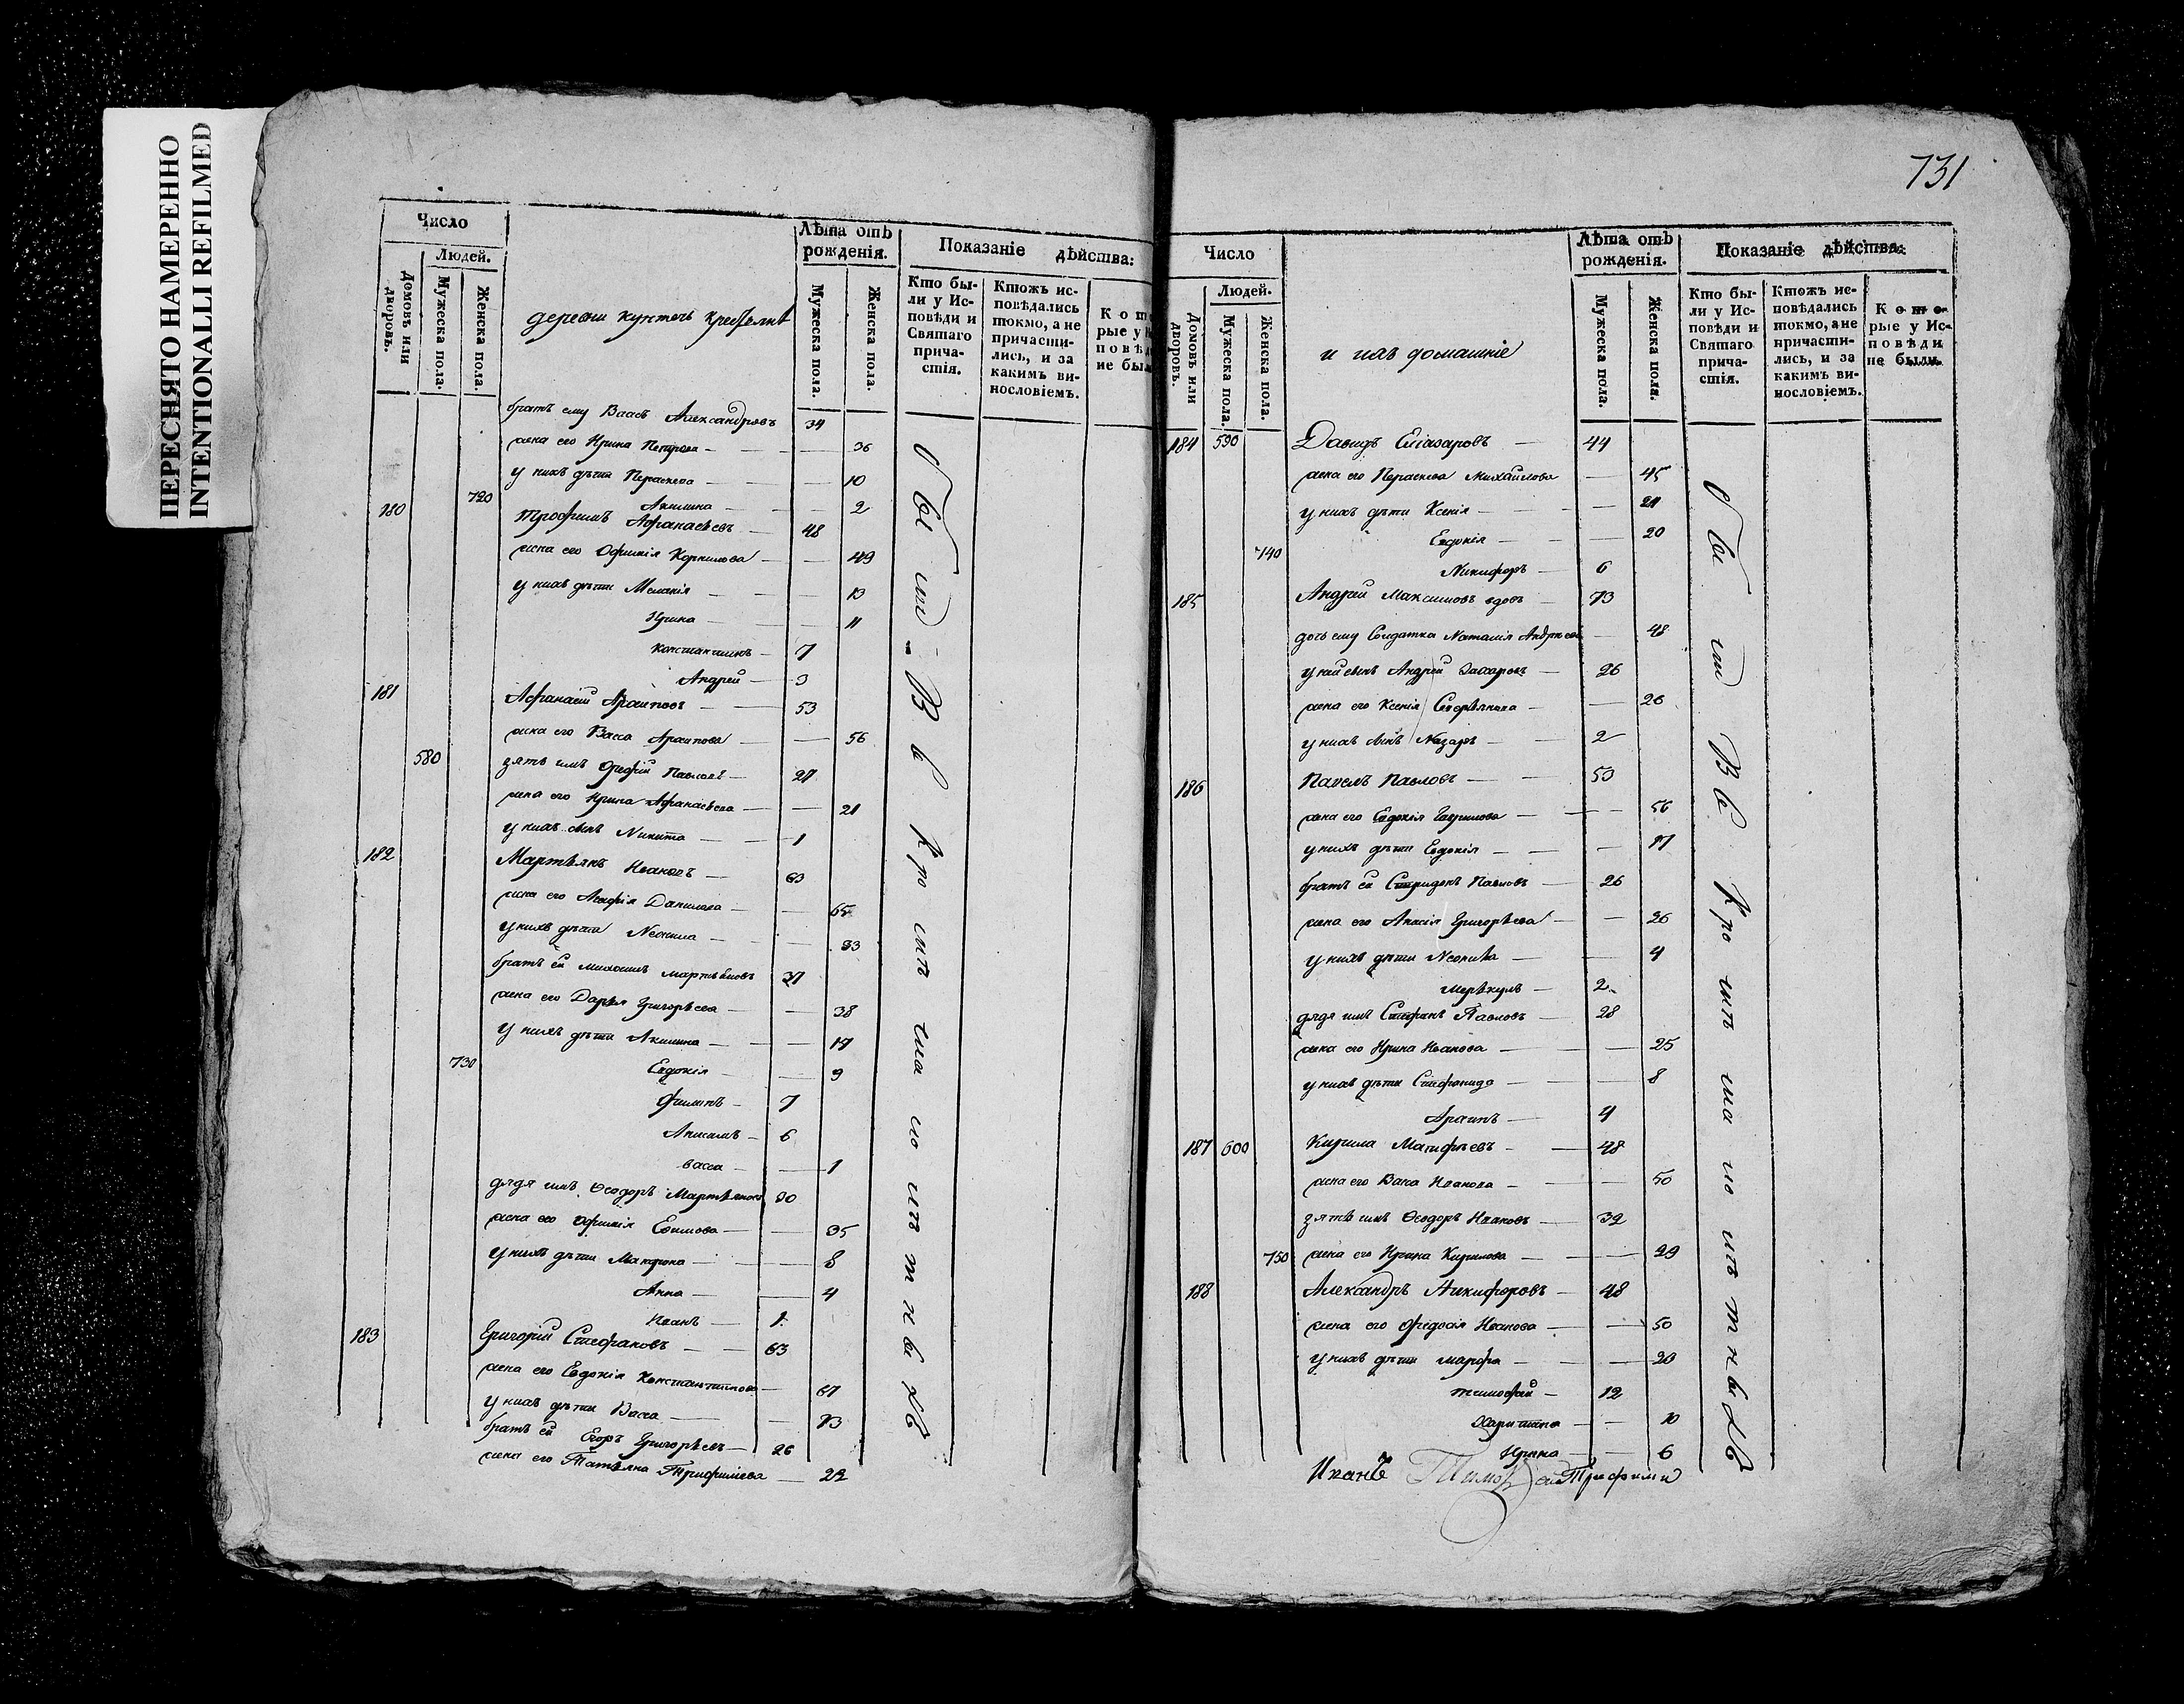 ПЕРЕСНЯТО НАМЕРЕННО
INTENTIONALLI REFILMED
Число
Людей.
Домовъ или дворовъ.
Мужеска пола.
Женска пола.
деревни
Лѣта отъ рожденія.
Мужеска пола.
Женска пола.
Показаніе дѣйства:
Кто бы-
ли у Ис-
повѣди и
Святаго
прича-
стія.
Ктожъ ис-
повѣдались
токмо, а не
причасти-
лись, и за
какимъ ви-
нословіемъ.
К о т
рые у
п о в ѣ
не был
братъ ему Власъ Александровъ 34
жена его Ирина Петрова 36
у нихъ дѣти Параскева 10
720 Акилина 2
180 Трофимъ Афанасьевъ 48
жена его Офимія Корнилова 49
у нихъ дѣти Меланія 13
Ирина 11
Константинъ 7
Андрей 3
181 Афанасій Архиповъ 53
жена его Васса Архипова 56
580 зять имъ Павловъ 27
жена его Ирина Афанасьева 21
у нихъ сынъ Никита 1
182 Мартьянъ Ивановъ 63
жена его Данилова 65
у нихъ дѣти Неонила 33
братъ ей Мартьяновъ 37
жена его Дарья Григорьева 38
у нихъ дѣти Акилина 17
730 Евдокія 9
Филипъ 7
Анисимъ 6
Васса 1
дядя имъ Ѳеодоръ Мартьяновъ 30
жена его Офимія Ефимова 35
у нихъ дѣти Матрона 8
Анна 4
Иванъ 1
183 Григорій Стефановъ 63
жена его Евдокія Константинова 67
у нихъ дѣти Васса 13
братъ ей Егоръ Григорьевъ 26
жена его Татьяна Трофимова 22
731
Число
Людей.
Домовъ или дворовъ.
Мужеска пола
Женска пола.
и ихъ домашніе
Лѣта отъ рожденія.
Мужеска пола.
Женска пола.
Показаніе дѣйства:
Кто бы-
ли у Ис-
повѣди и
Святаго
прича-
стія.
Ктожъ ис-
повѣдались
токмо, а не
причасти-
лись, и за
какимъ ви-
нословіемъ.
К о т о-
рые у Ис-
п о в ѣ д и
не были.
184 590 Давидъ Елизаровъ 44
жена его Параскева Михайлова 45
у нихъ дѣти Ксенія 21
Евдокія 20
740
Никифоръ 6
185 Андрей Максимовъ вдовъ 73
дочь ему Солдатка Наталія Андреева 48
у ней сынъ Андрей Захаровъ 26
жена его Ксенія 26
у нихъ сынъ Назаръ 2
186 Павелъ Павловъ 53
жена его Евдокія Гаврилова 56
у нихъ дѣти Евдокія 17
братъ ей Спиридонъ Павловъ 26
жена его Григорьева 26
у нихъ дѣти 4
Меркулъ 2
дядя имъ Стефанъ Павловъ 28
жена его Ирина Иванова 25
у нихъ дѣти Стефанида 8
Архипъ 4
187 600 Кирила 48
жена его Васса Иванова 50
зять имъ Ѳеодоръ Ивановъ 32
750 жена его Ирина Кирилова 29
188 Александръ Никифоровъ 48
жена его Федосія Иванова 50
у нихъ дѣти Марфа 20
Тимофей 12
Харитина 10
Ирина 6
Иванъ